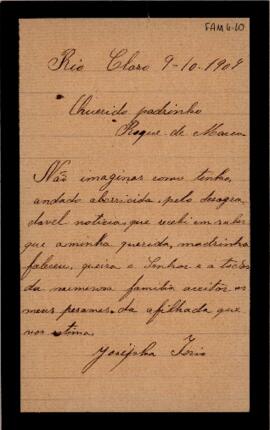 FAM 6-10
Rio Claro 9-10-1909
Querido padrinho
Roque de Marco
Não imaginas como tenho
andado aborricida, pelo desagra
davel noticia que recebi em saber
que a minha querida, madrinha
faleceu, queira o Senhor e a todos
da numerosa familia aceitar os
meus pesames. da afilhada que
vos estima.
Josepha